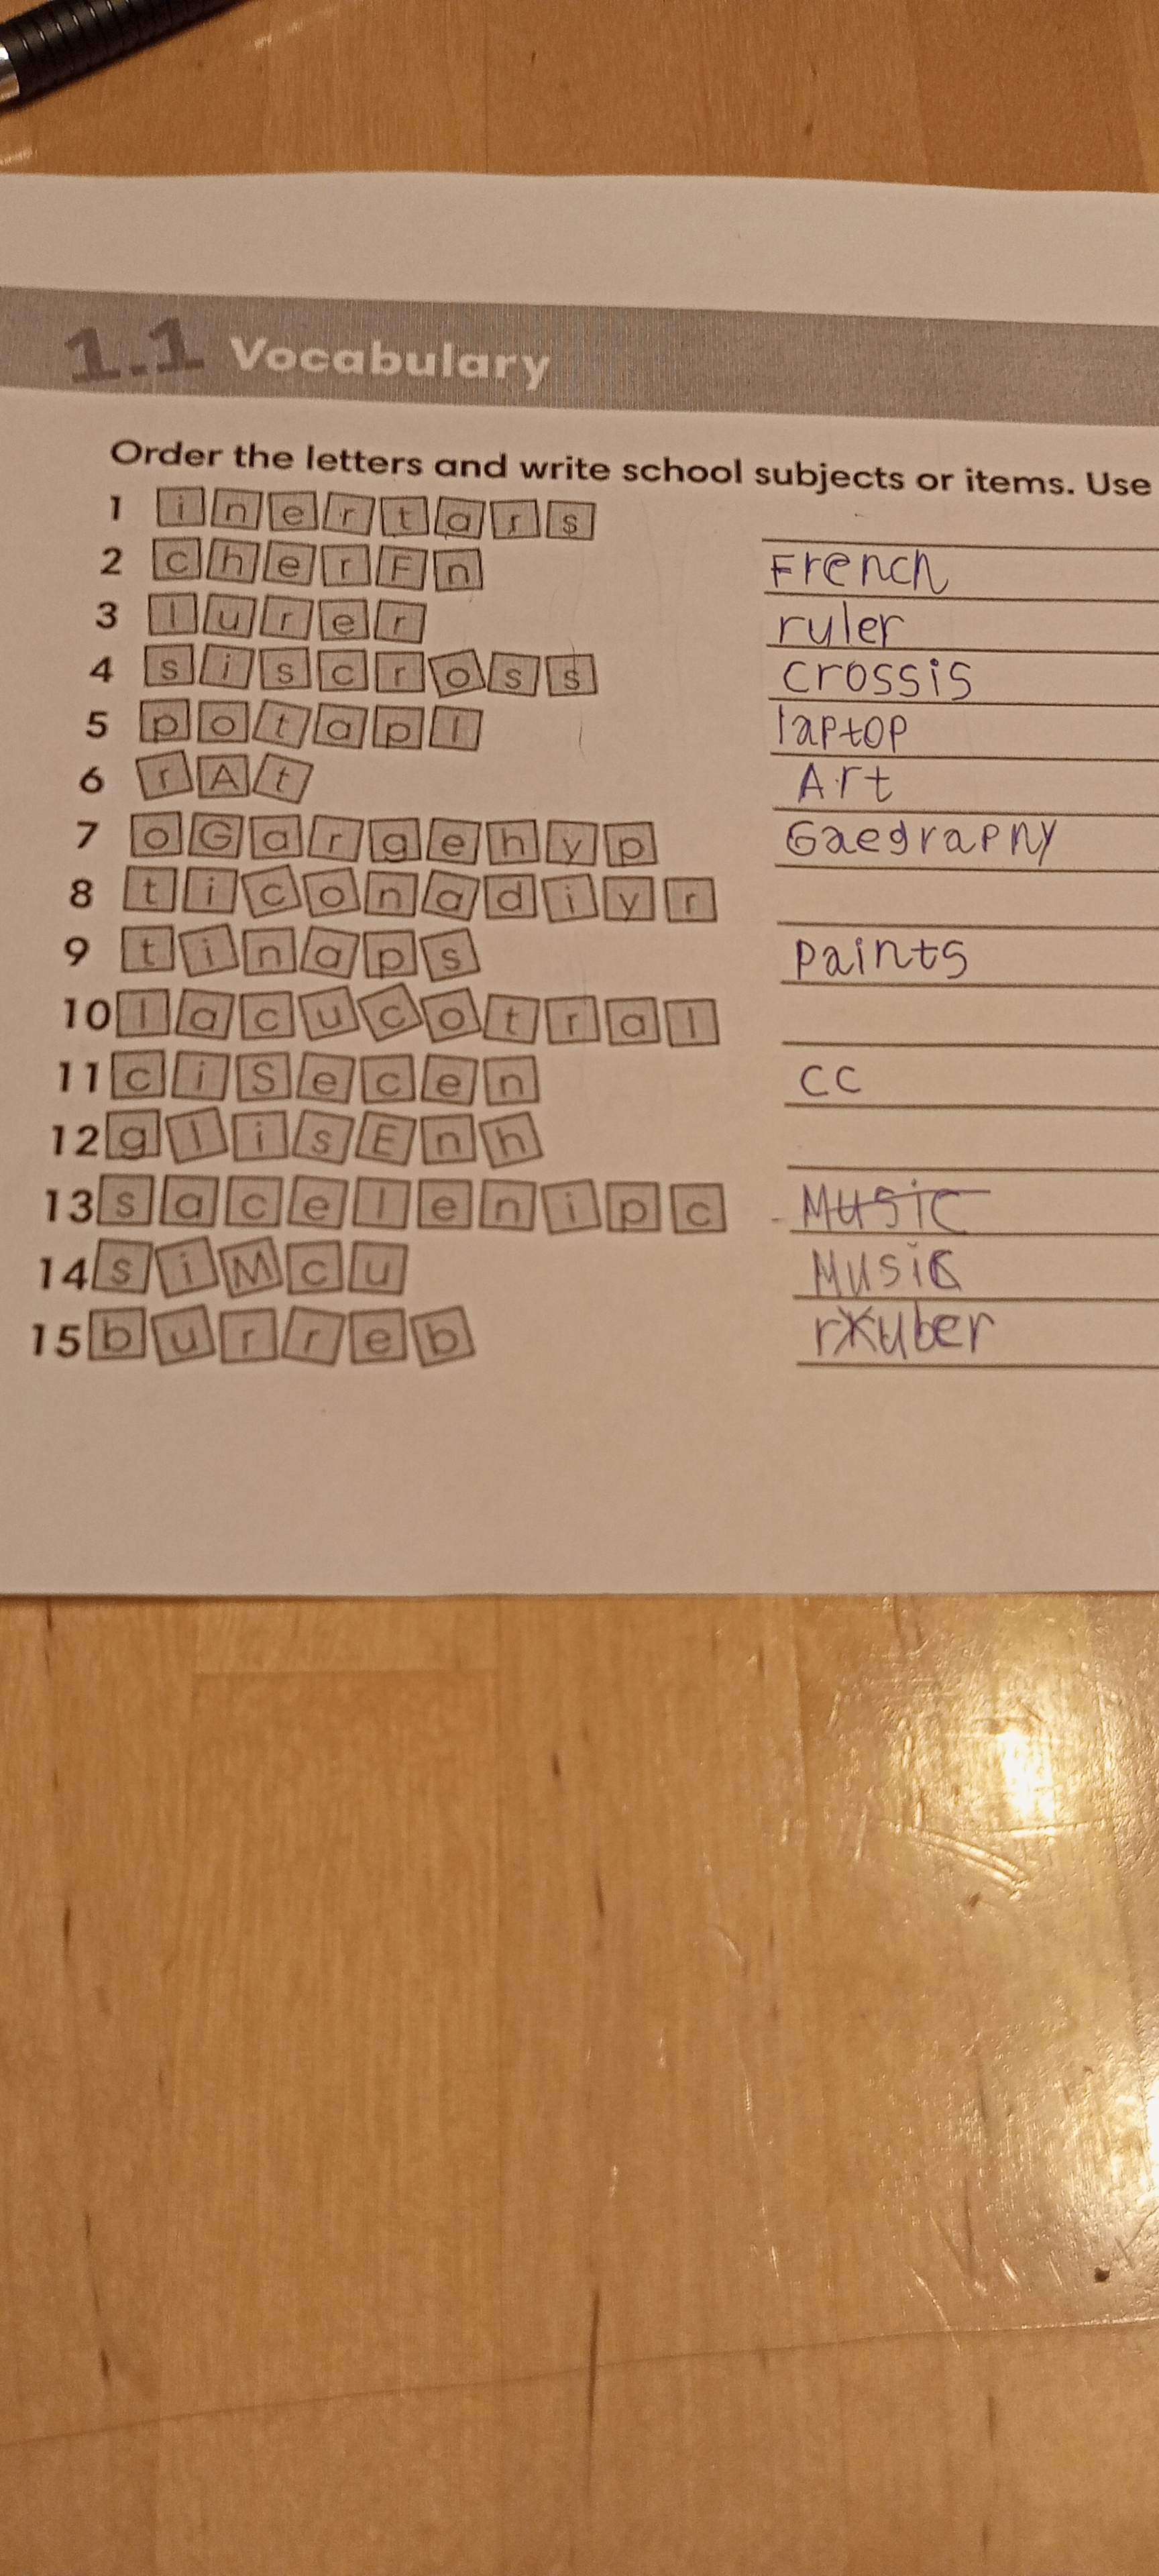 1.1 Vocabulary
Order the letters and write school subjects or items. Use
1 i n e r t a r s
2 c h e r F n French
3 l u r e r ruler
4 s i s c r o s s crossis
5 p o t a p l laptop
6 r A t Art
7 o G a r g e h y p Gaegraphy
8 t i c o n a d i y r
9 t i n a p s paints
10 l a c u c o t r a l
11 c i S e c e n cc
12 g l i s E n h
13 s a c e l e n i p c Music
14 s i M c u Music
15 b u r r e b rxuber